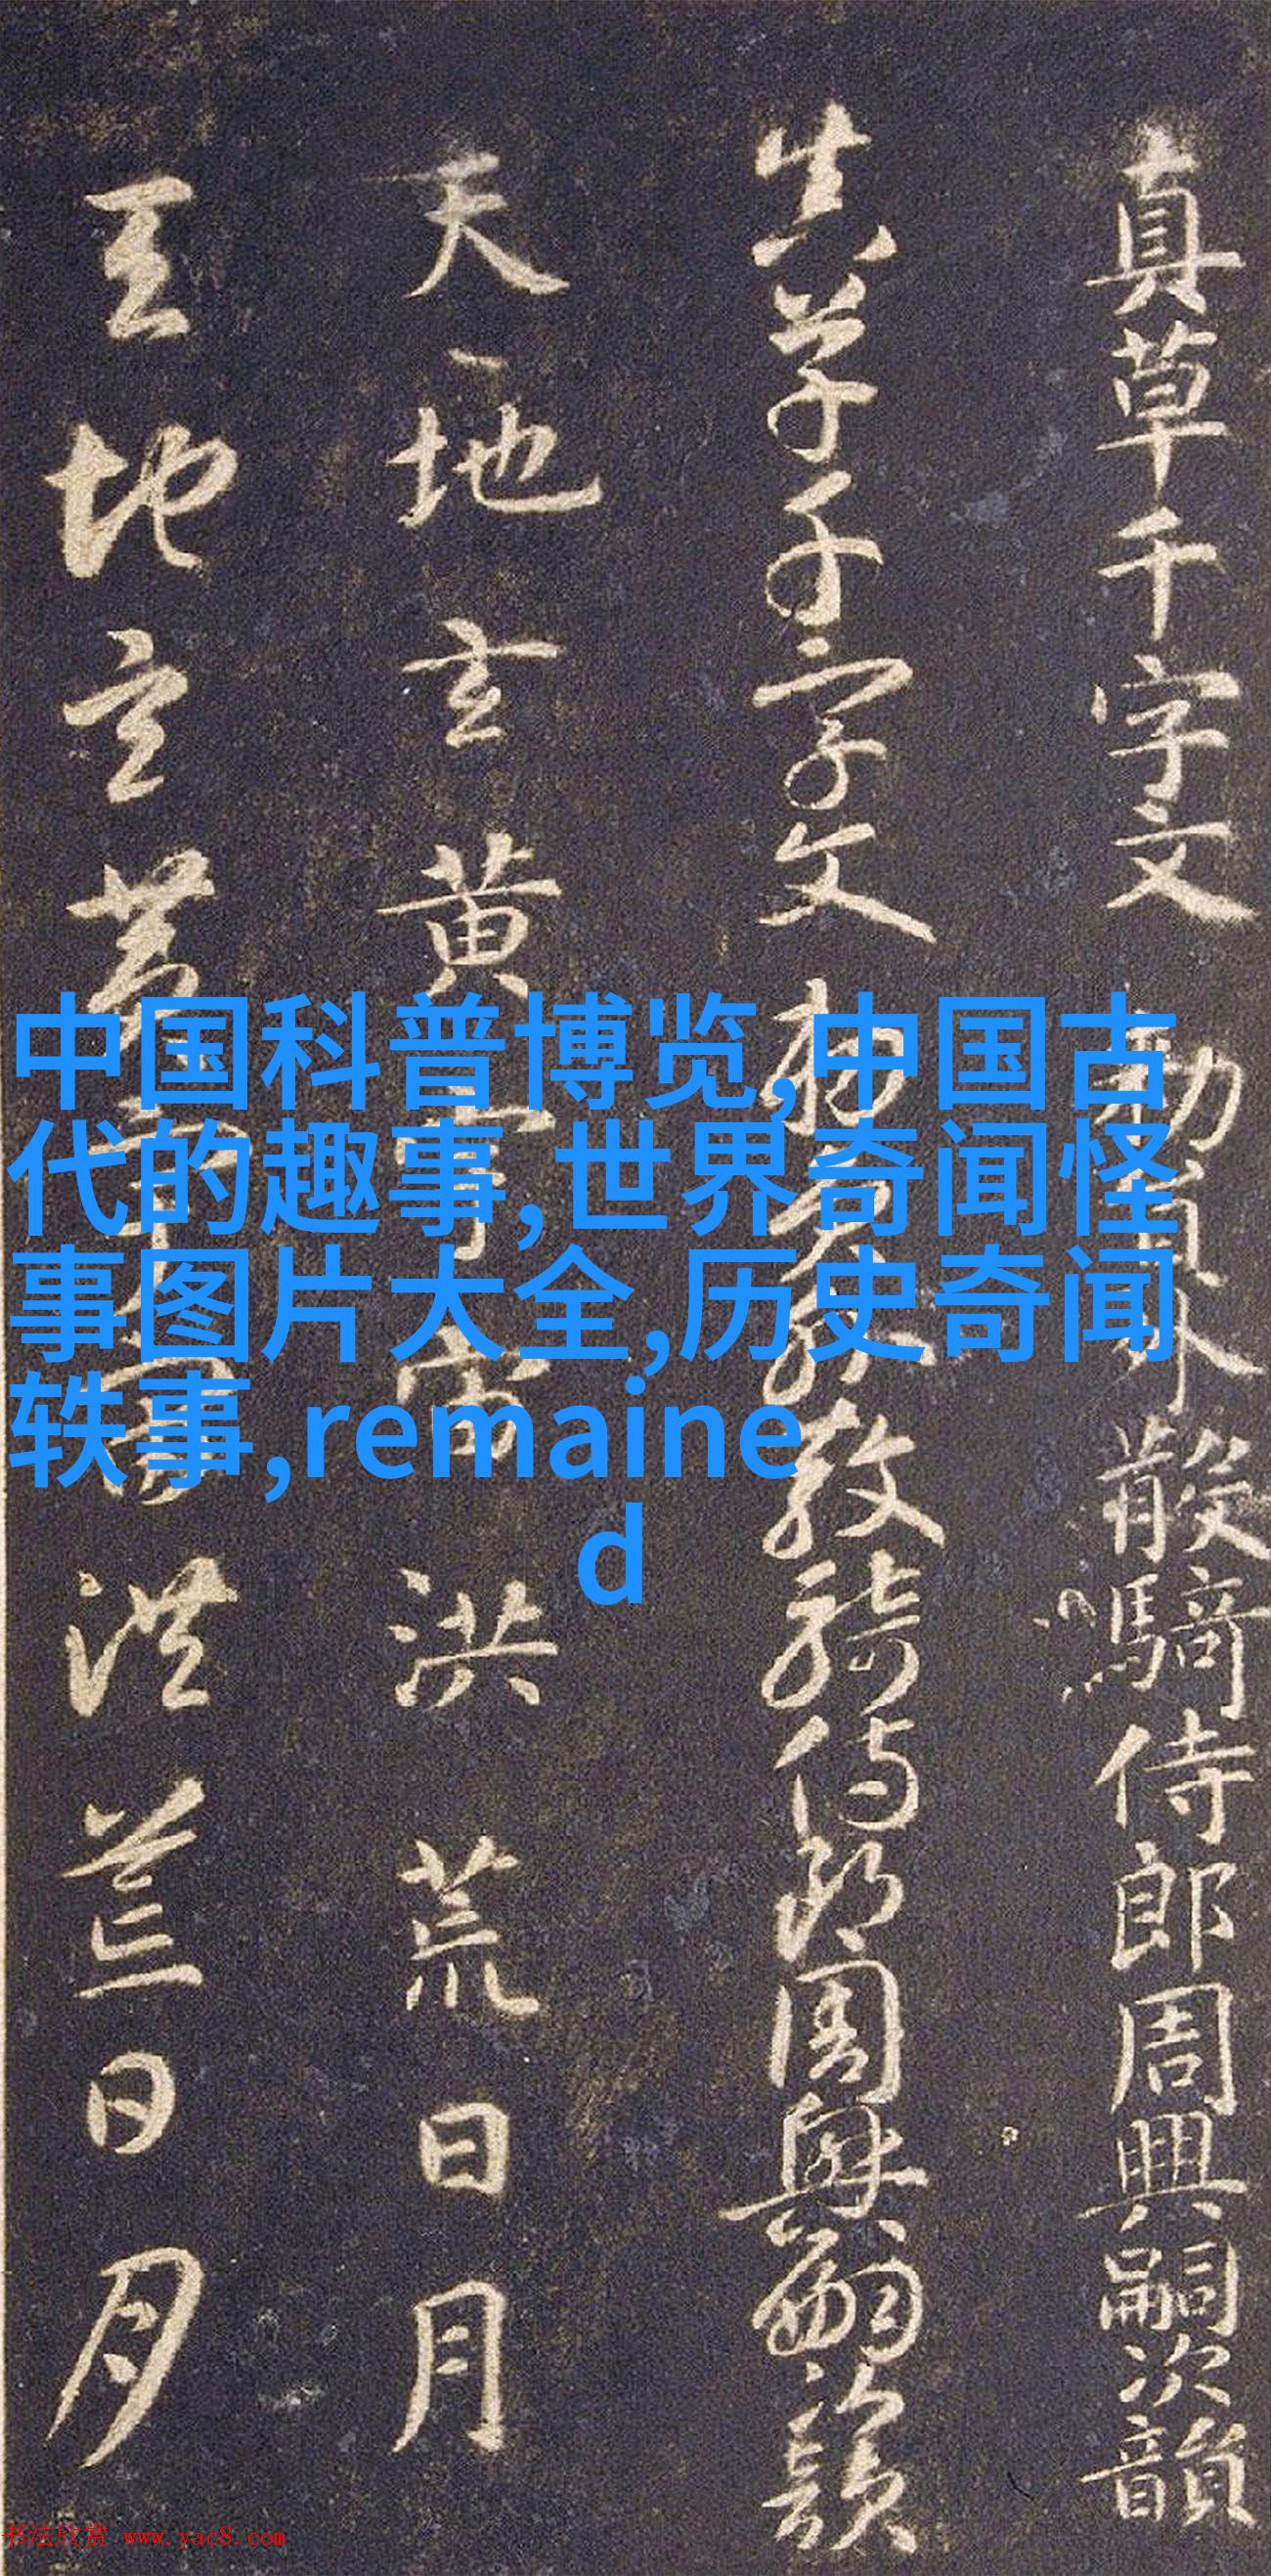 真草千字文 勅員外散騎侍郎周興嗣次韻
真草千字文 勅員外散騎侍郎周興嗣次韻
天地玄黄宇宙洪荒日月
天地玄黄宇宙洪荒日月
中国科普博览,中国古
代的趣事,世界奇闻怪
事图片大全,历史奇闻
轶事,remaine
d
书法欣赏 www.yac8.com